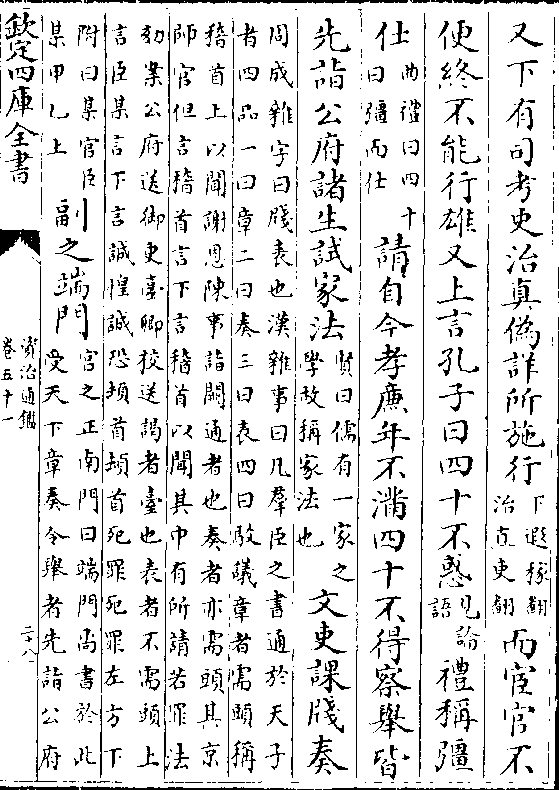 又下有司考吏治真偽詳所施行下遐稼翻治直吏翻而宦官不
便終不能行雄又上言孔子曰四十不惑見論語禮稱彊
仕曲禮曰四十曰彊而仕請自今孝廉年不滿四十不得察舉皆
先詣公府諸生試家法賢曰儒有一家之學故稱家法也文吏課牋奏
周成雜字曰牋表也漢雜事曰凡羣臣之書通於天子
者四品一曰章二曰奏三曰表四曰駮議章者需頭稱
稽首上以聞謝恩陳事詣闕通者也奏者亦需頭其京
師官但言稽首言下言稽首以聞其中有所請若罪法
劾案公府送御史臺卿校送謁者臺也表者不需頭上
言臣某言下言誠惶誠恐頓首頓首死罪死罪左方下
附曰某官臣某甲乙上副之端門宮之正南門曰端門尚書於此受天下章奏令舉者先詣公府
欽定四庫全書
資治通鑑
卷五十一
二八